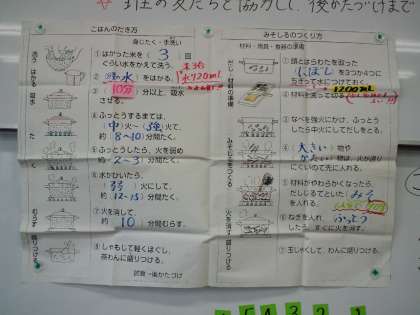 班の友だちと協力して、後かたづけまで
ごはんのたき方
身じたく・手洗い
洗う
はかる
吸水
たく
むらす
盛りつける
① はがった米を 3 回
くらい水をかえて洗う
② 水 をはかる。
水720mL
③ 10分 分以上、吸水
させる。
④ ふっとうするまでは、
中火〜強火で、
約 8〜10 分間たく。
⑤ ふっとうしたら、火を弱め
約 2〜3 分間たく。
⑥ 水がひいたら、
弱 火にして、
約 12〜15 分間たく。
⑦ 火を消して、
約 10 分間むらす。
⑧ しゃもじで軽くほぐし、
茶わんに盛りつける。
試食→後かたづけ
みそしるのつくり方
材料・用具・食器の準備
だし・材料の準備
みそしるをつくる
火を消す・盛りつける
① 頭とはらわたを取った
にぼし を3つか4つに
ちぎって水につけておく
1200mL
② 材料を洗って切る
③ なべを強火にかけ、ふっとう
したら中火にしてだしをとる。
④ 大きい 物や
かたい 物は、火が通り
にくいので先に入れる。
⑤ 材料がやわらかくなったら、
だしじるでといた みそ
を入れる。
⑥ ねぎを入れ、ふっとう
したら、すぐに火を消す。
⑦ 玉じゃくしで、わんに盛りつける。
5 4 3 2 1